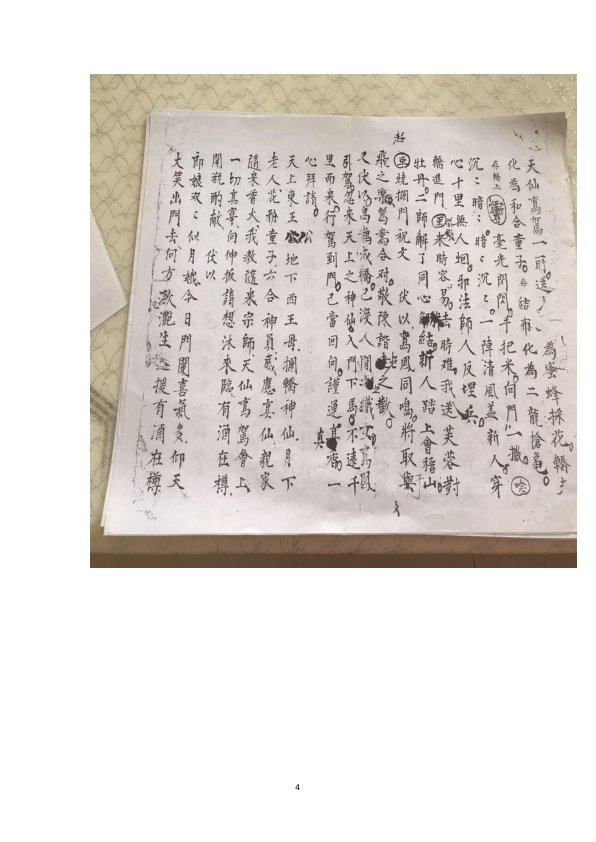 為蜜蜂採花。轎上
天仙鸞駕一前送
化為和合童子。存結布化為二龍搶亀。
存轎上毫光閃閃。手把米。向門一撒。唸
沉沉暗暗。暗暗沉沉。一陣清風蓋新人。穿
心十里無人䢛。邪法師人反埋兵。
轎進門画來時容易。去時難。我送芙蓉對
牡丹。二師解了同心結。新人踏上會稽山。
画燒攔門祝文 伏以鸞鳳同鳴。將取樂
飛之樂。鴛鴦合对。敬陳諧老之歡。
又伏以烏鵲成橋。已沒人間織女。鸞鳳
引駕。忽來天上之神仙。入門下馬。不遠千
里而來。行駕到門。已當回向。謹運真香。一
心拜請。
天上東王公地下西王母。攔轎神仙。月下
老人。花粉童子。六合神員。感應真仙。親家
隨來香火。我教隨來宗師。天仙鸞駕會上
一切真宰。向伸拔請。想沐來臨。有酒在樽。
開瓶酌献 伏以
郎娘双双似月娥。今日門闌喜氣多。仰天
大笑出門去。何方款灑生 援有酒在樽
4